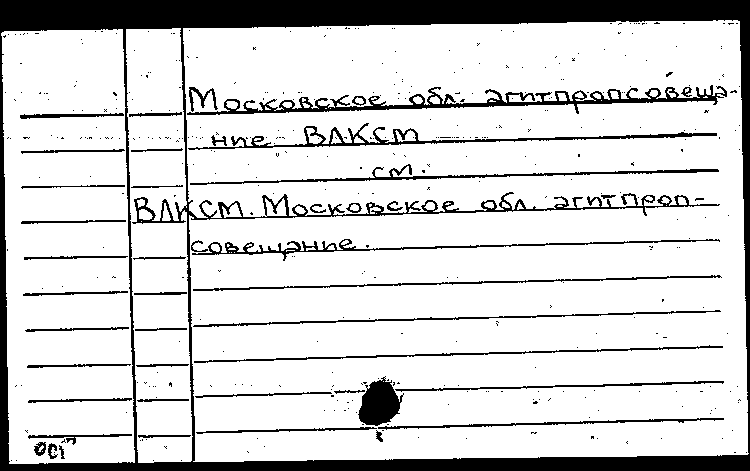 Московское обл. агитпропсовеща-
ние ВЛКСМ
см.
ВЛКСМ. Московское обл. агитпроп-
совещание.